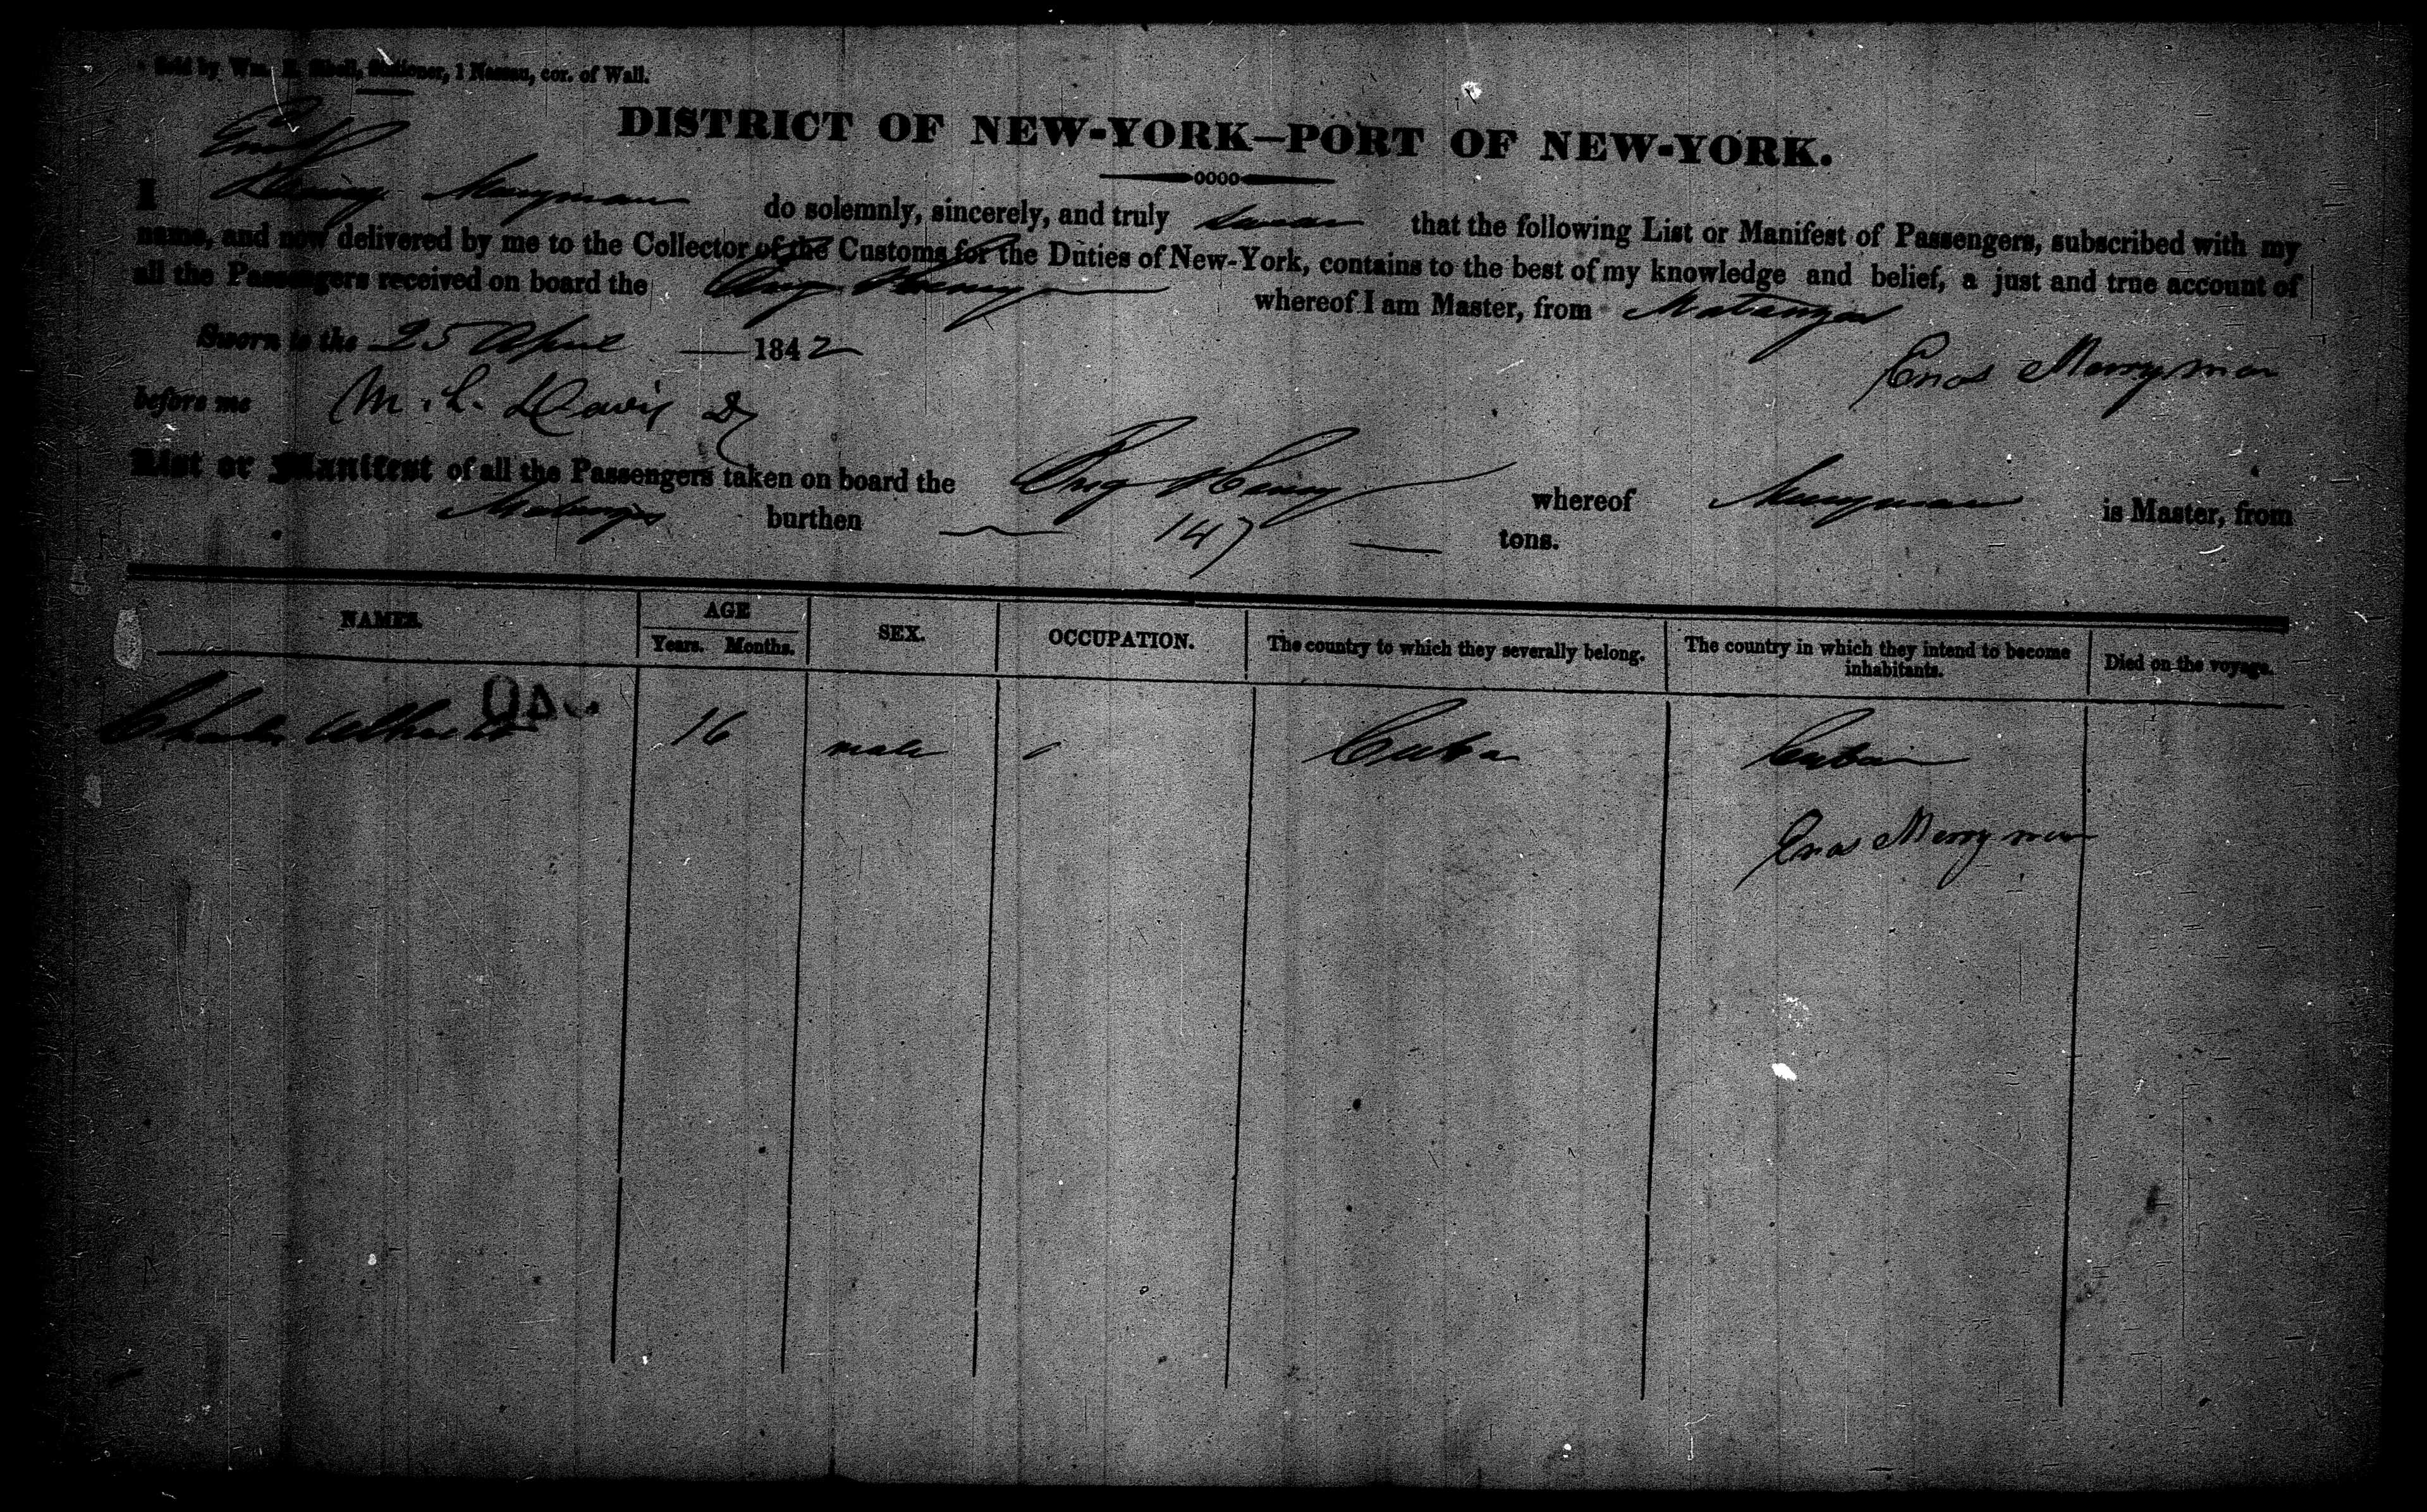 Sold by Wm. Stationer, 1 Nassau, cor. of Wall.
DISTRICT OF NEW-YORK—PORT OF NEW-YORK.
Enos
I Merryman do solemnly, sincerely, and truly swear that the following List or Manifest of Passengers, subscribed with my
name, and now delivered by me to the Collector of the Customs for the Duties of New-York, contains to the best of my knowledge and belief, a just and true account of
all the Passengers received on board the Brig Henry whereof I am Master, from Matanzas
Sworn to the 25 April 1842
Enos Merryman
before me M. L. Davis
List or Manifest of all the Passengers taken on board the Brig Henry whereof Merryman is Master, from
Matanzas burthen 147 tons.
NAMES. AGE SEX. OCCUPATION. The country to which they severally belong. The country in which they intend to become inhabitants. Died on the voyage.
Years. Months.
Charles 16 male Cuba Cuba
Enos Merryman